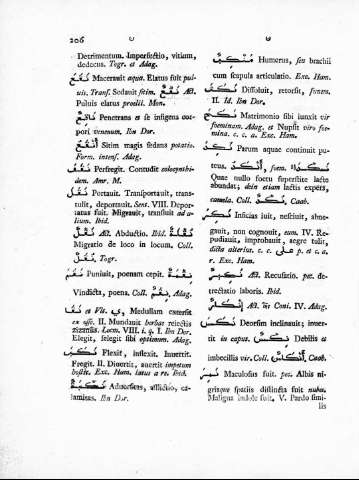 206
Detrimentum. Imperfectio, vitium,
dedecus. Togr. et Adag.
نقع Macerauit aqua. Elatus fuit pul-
uis. Transf. Sedauit sitim. نقع AB.
Puluis elatus proelii. Mon.
ناقع Penetrans et se insigens cor-
pori venenum. Ibn Dor.
أنقع Sitim magis sedans potatio.
Form. intens. Adag.
نقف Perfregit. Contudit colocynthi-
dem. Amr. M.
نقل Portauit. Transportauit, trans-
tulit, deportauit. Sent. VIII. Depor-
tatus fuit. Migrauit, transiuit ad a-
lium. Ibid.
نقل AB. Abductio. Ibid. نقلة
Migratio de loco in locum. Coll.
نقل Togr.
نقم Puniuit, poenam cepit. نقمة
Vindicta, poena. Coll. نقم Adag.
نقا et Vlt. ي, Medullam extersit
ex osse. II. Mundauit herbas reiectis
zizaniis. Locm. VIII. i. q. I. Ibn Dor.
Elegit, selegit sibi optimum. Adag.
نكب Flexit, inflexit. Inuertit.
Fregit. II. Diuertit, auertit impetum
hostis. Exc. Ham. latus a re. Ibid.
نكبة Aduersitas, afflictio, ca-
lamitas. Ibn Dor.
منكب Humerus, seu brachii
cum scapula articulatio. Exc. Ham.
نكث Dissoluit, retorsit, funem.
II. Id. Ibn Dor.
نكح Matrimonio sibi iunxit vir
foeminam. Adag. et Nupsit viro foe-
mina. c. c. a. Exc. Ham.
نكد Parum aquae continuit pu-
teus. أنكد, foem. نكداء
Quae nullo foetu superstite lactis
abundat; dein etiam lactis expers,
camela. Coll. نكد Caab.
نكر Inscius fuit, nesciuit, abne-
gauit, non cognouit, eum. IV. Re-
pudiauit, improbauit, aegre tulit,
dicta alterius. c. c. على p. et c. a.
r. Exc. Ham.
نكير AB. Recusatio. pec. de-
trectatio laboris. Ibid.
إنكار AB. τε Coni. IV. Adag.
نكس Deorsim inclinauit; inuer-
tit in caput. نكس Debilis et
imbecillis vir. Coll. أنكاس Caab.
نمر Maculosus fuit. pec. Albis ni-
grisque spatiis distincta fuit nubes.
Maligna indole fuit. V. Pardo simi-
lis